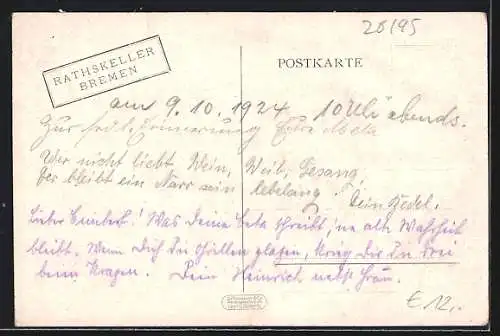 28/95
RATHSKELLER
BREMEN
POSTKARTE
am 9.10.1924 10 Uhr abends.
Zur frdl. Erinnerung Eure Meta
Wer nicht liebt Wein, Weib, Gesang,
Der bleibt ein Narr sein lebelang. Dein Fiedel.
Lieber! Was Deine Meta schreibt, 'ne alte Wahrheit
bleibt. Wenn Dich die Grillen plagen, krieg die
beim Kragen. Dein Heinrich nebst Frau.
€ 12,-